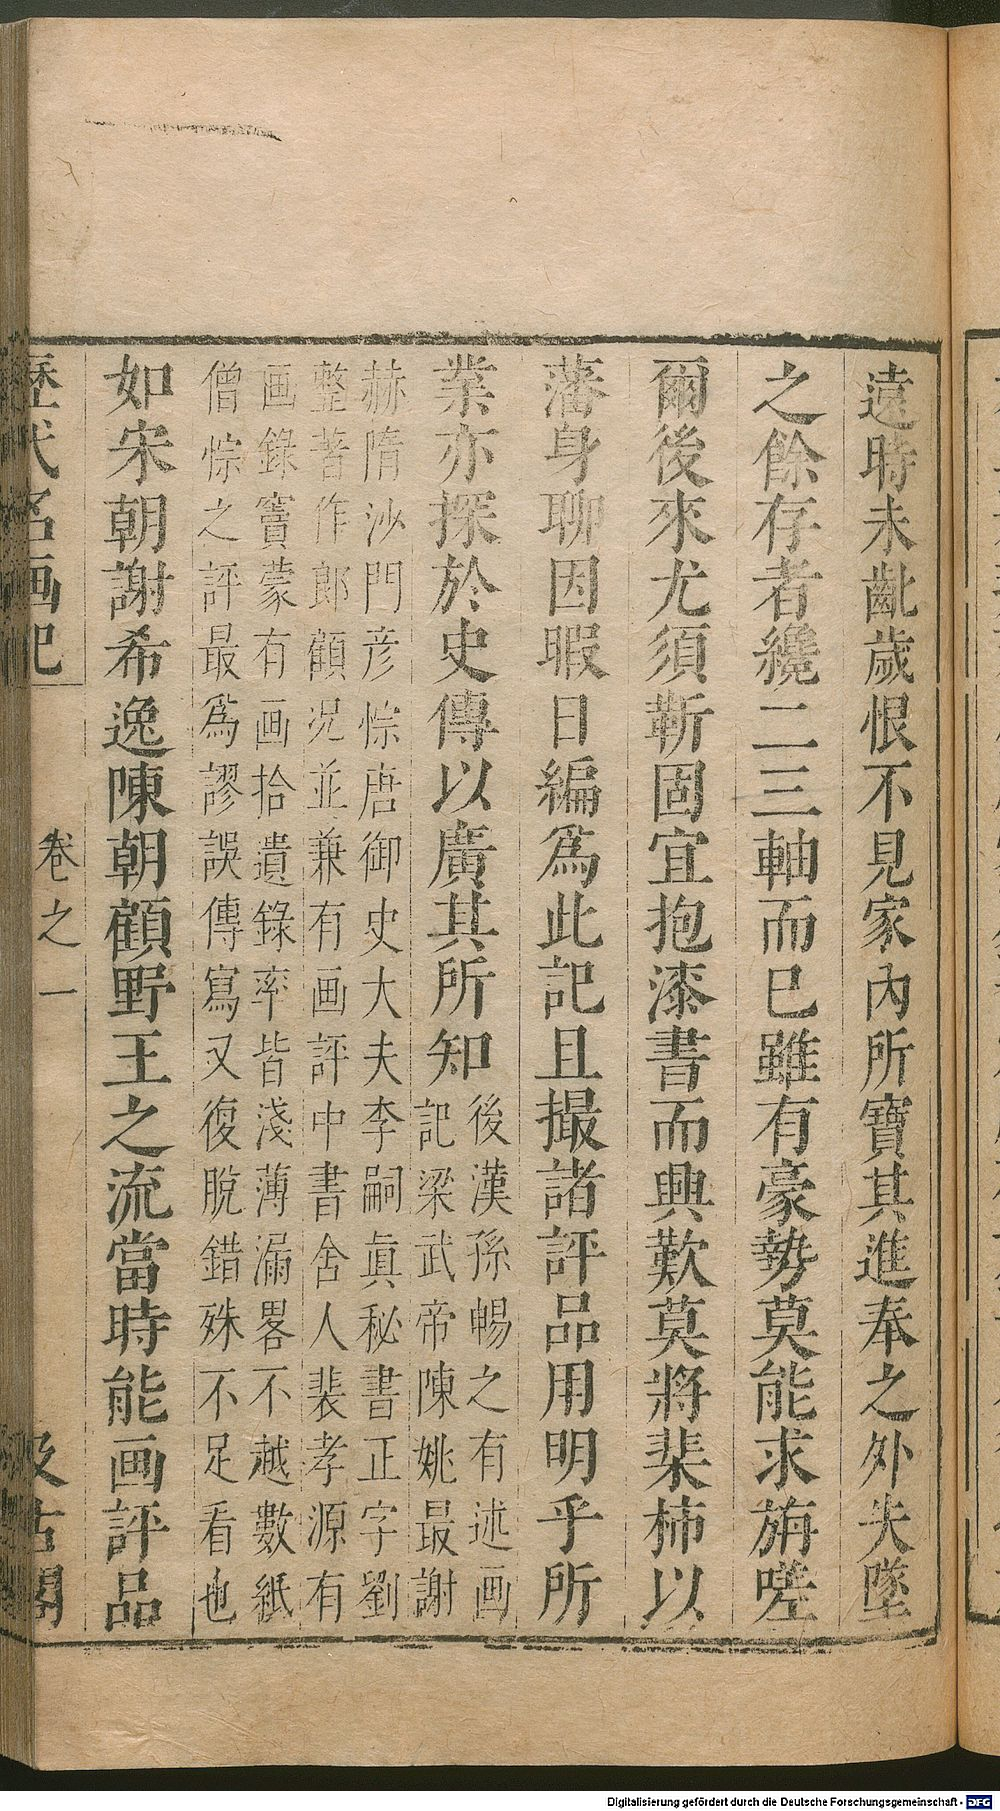 遠時未齔歲恨不見家內所寶其進奉之外失墜
之餘存者纔二三軸而已雖有豪勢莫能求旃嗟
爾後來尤須靳固宜抱漆書而興歎莫將棐柿以
藩身聊因暇日編爲此記且撮諸評品用明乎所
業亦探於史傳以廣其所知
後漢孫暢之有述画
記梁武帝陳姚最謝
赫隋沙門彦悰唐御史大夫李嗣眞秘書正字劉
整著作郎顧况並兼有画評中書舍人裴孝源有
画錄竇蒙有画拾遺錄率皆淺薄漏畧不越數紙
僧悰之評最爲謬誤傳寫又復脫錯殊不足看也
如宋朝謝希逸陳朝顧野王之流當時能画評品
歷代名画記
卷之一
汲古閣
Digitalisierung gefördert durch die Deutsche Forschungsgemeinschaft - DFG